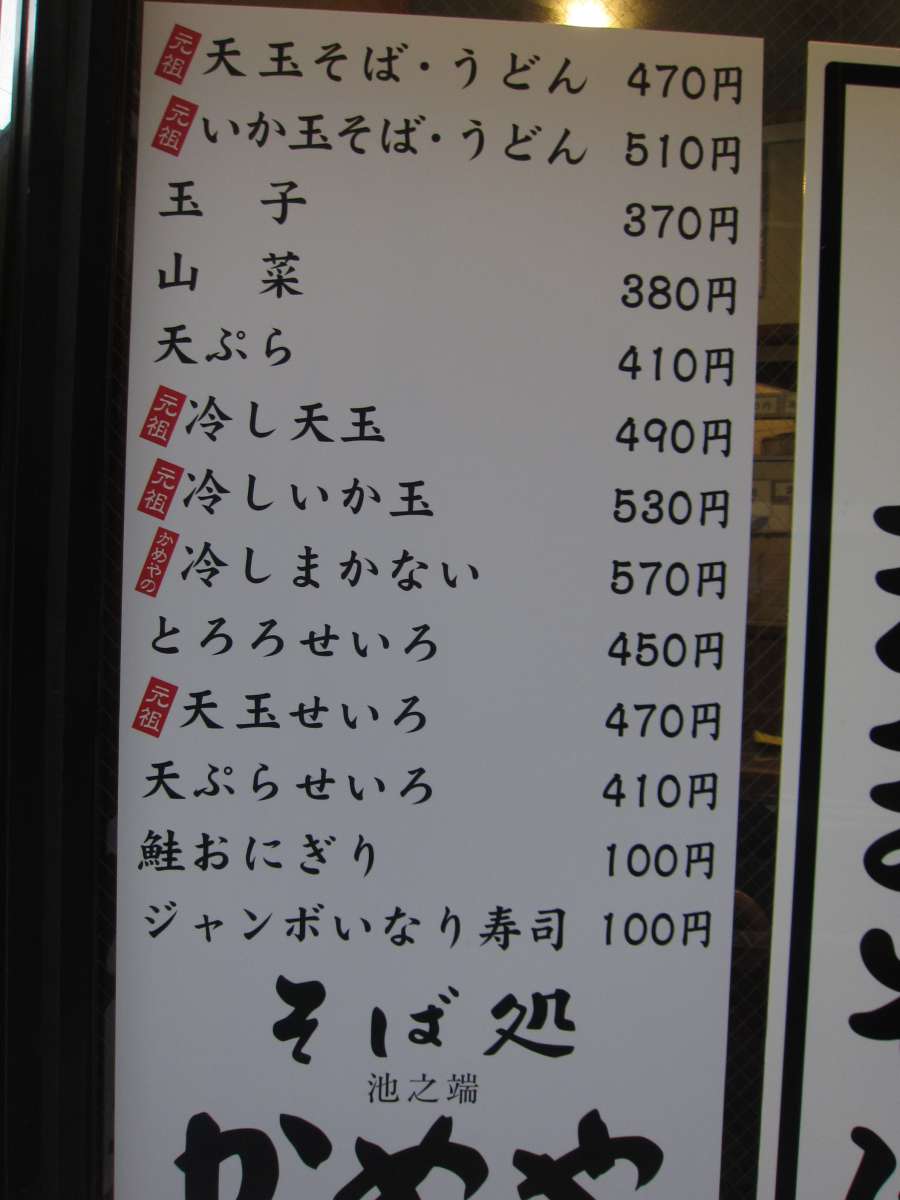 元祖 天玉そば・うどん 470円
元祖 いか玉そば・うどん 510円
玉子 370円
山菜 380円
天ぷら 410円
元祖 冷し天玉 490円
元祖 冷しいか玉 530円
かめやの 冷しまかない 570円
とろろせいろ 450円
元祖 天玉せいろ 470円
天ぷらせいろ 410円
鮭おにぎり 100円
ジャンボいなり寿司 100円
そば処
池之端
かめや